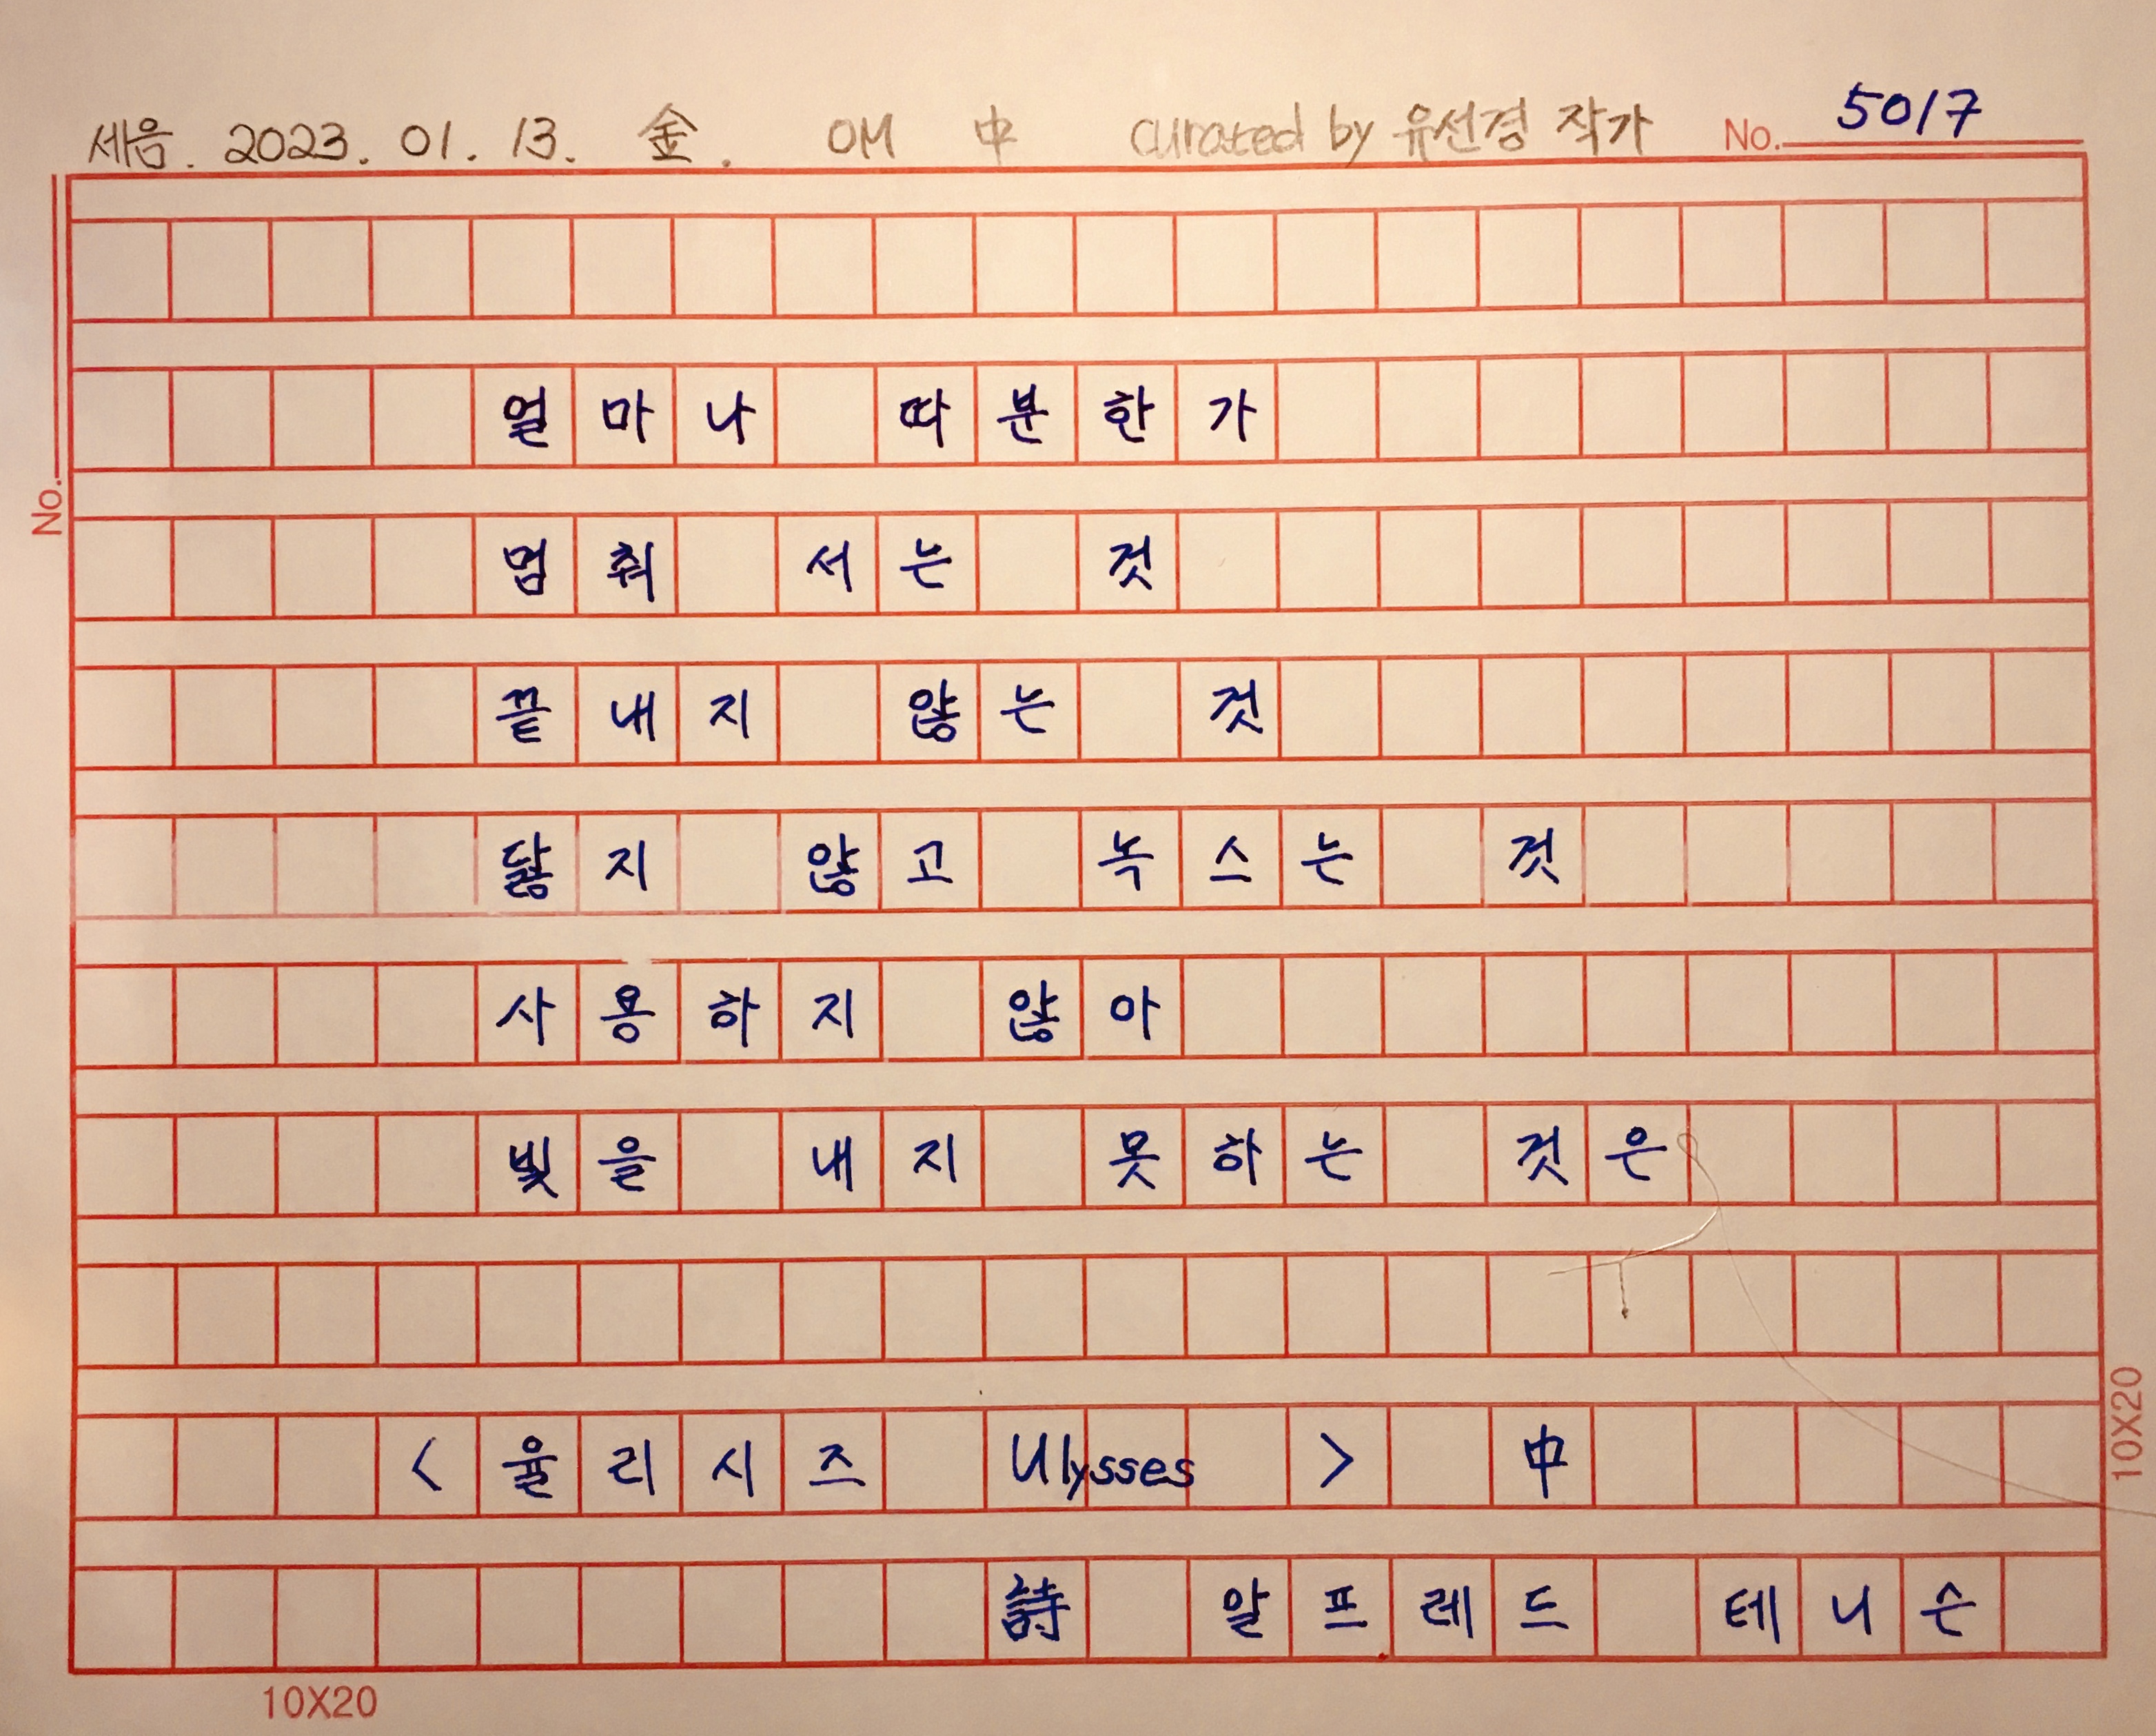 세음. 2023. 01. 13. 金. OM 中 curated by 유선경 작가 No. 5017
얼마나 따분한가
No.
멈춰 서는 것
끝내지 않는 것
닳지 않고 녹스는 것
사용하지 않아
빛을 내지 못하는 것은
<율리시즈 Ulysses > 中
10X20
詩 알프레드 테니슨
10X20